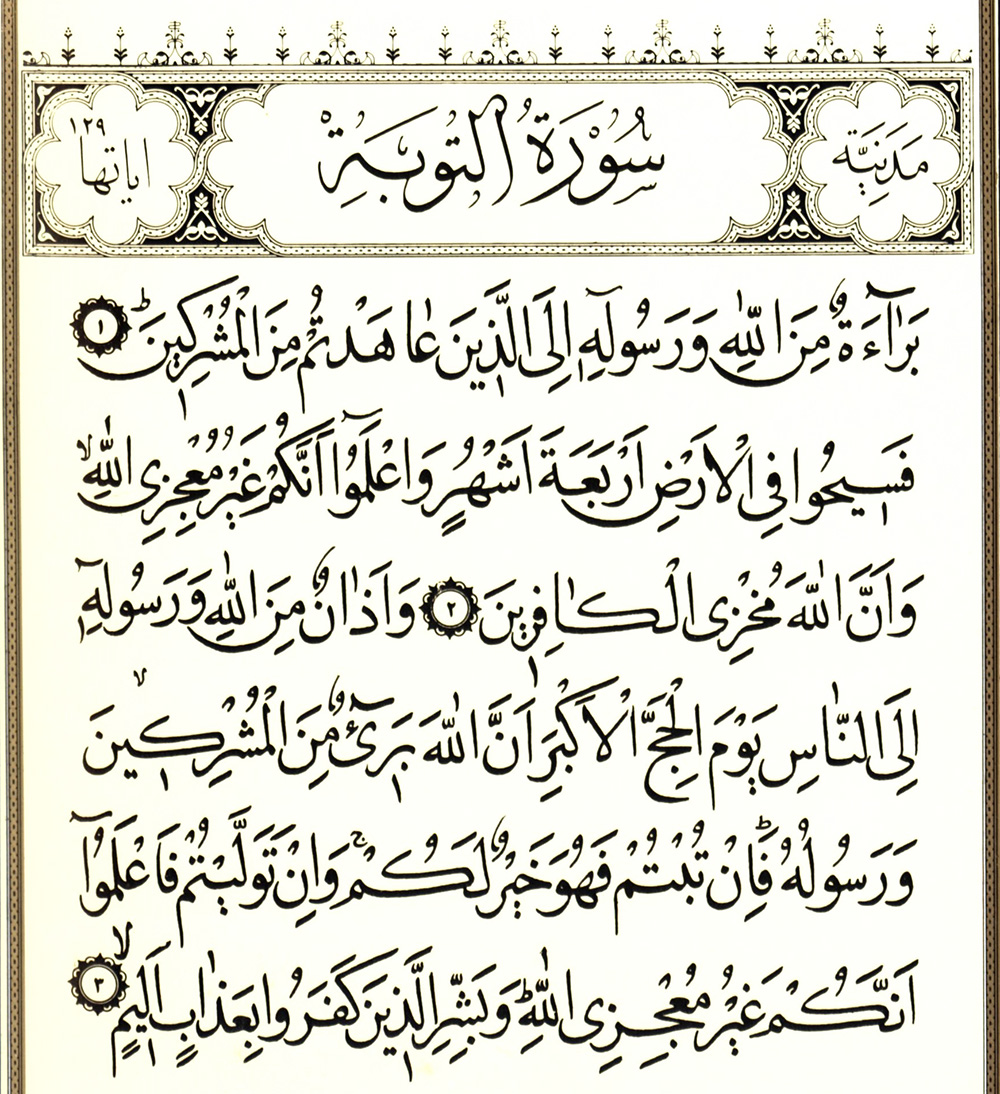 مَدَنِيَّة
سُورَةُ التَّوْبَةِ
اياتها ١٢٩
بَرَٓاءَةٌ مِنَ اللّٰهِ وَرَسُولِهِٓ اِلَى الَّذينَ عَاهَدْتُمْ مِنَ الْمُشْرِكينَۜ ﴿١﴾
فَسيحُوا فِي الْاَرْضِ اَرْبَعَةَ اَشْهُرٍ وَاعْلَمُٓوا اَنَّكُمْ غَيْرُ مُعْجِزِي اللّٰهِۙ
وَاَنَّ اللّٰهَ مُخْزِي الْكَافِرينَ ﴿٢﴾ وَاَذَانٌ مِنَ اللّٰهِ وَرَسُولِهِٓ
اِلَى النَّاسِ يَوْمَ الْحَجِّ الْاَكْبَرِ اَنَّ اللّٰهَ بَرىٓءٌ مِنَ الْمُشْرِكينَۙ
وَرَسُولُهُۜ فَاِنْ تُبْتُمْ فَهُوَ خَيْرٌ لَكُمْۚ وَاِنْ تَوَلَّيْتُمْ فَاعْلَمُٓوا
اَنَّكُمْ غَيْرُ مُعْجِزِي اللّٰهِۜ وَبَشِّرِ الَّذينَ كَفَرُوا بِعَذَابٍ اَليمٍۙ ﴿٣﴾